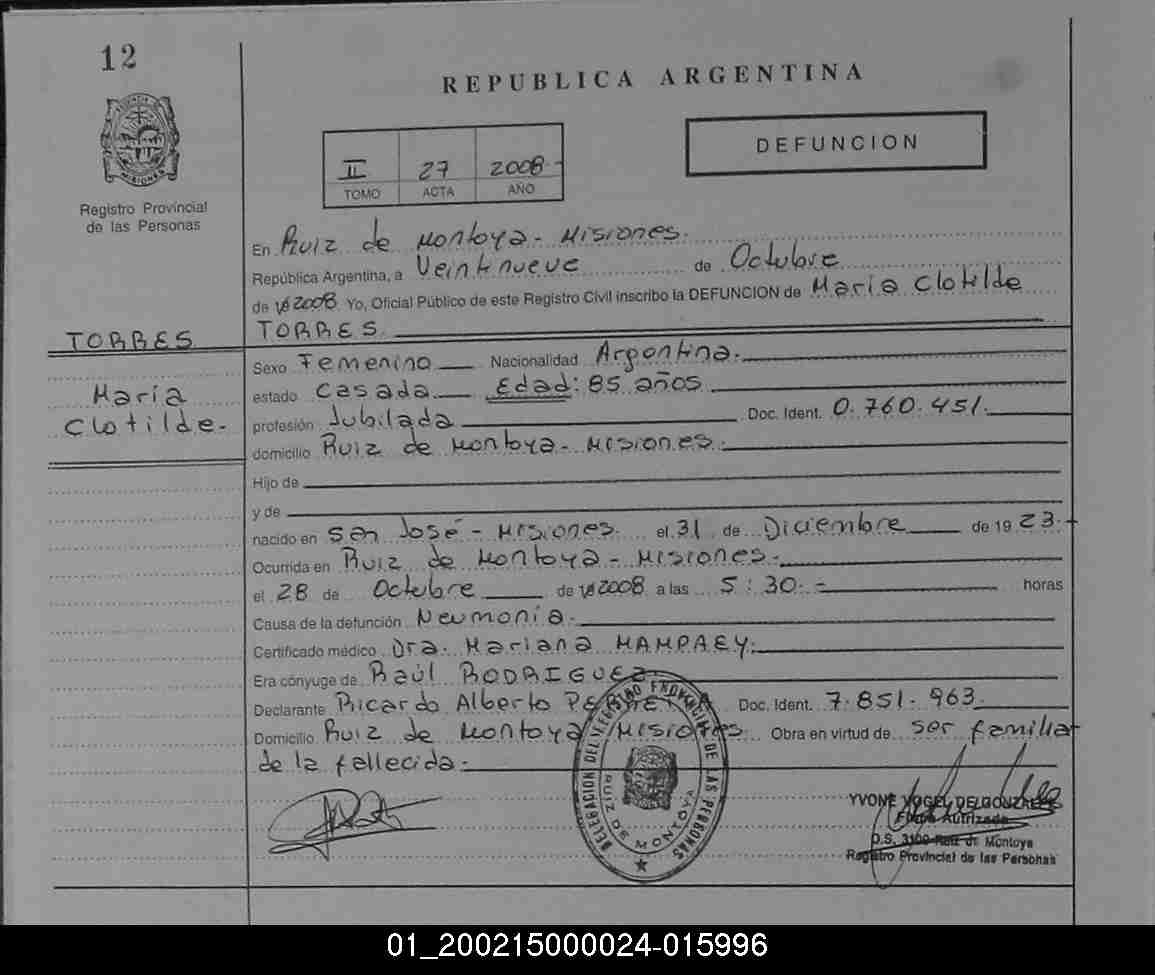 12
REPUBLICA ARGENTINA
PROVINCIA DE
MISIONES
Registro Provincial
de las Personas
II 27 2008
TOMO ACTA AÑO
DEFUNCION
En Ruiz de Montoya - Misiones.
República Argentina, a Veintinueve de Octubre
de 2008 Yo, Oficial Público de este Registro Civil inscribo la DEFUNCION de María Clotilde
TORRES
TORRES
María
Clotilde.-
Sexo Femenino Nacionalidad Argentina.
estado Casada Edad: 85 años
profesión Jubilada Doc. Ident. 0.760.451.
domicilio Ruiz de Montoya - Misiones.
Hijo de
y de
nacido en San José - Misiones. el 31 de Diciembre de 19 23.-
Ocurrida en Ruiz de Montoya - Misiones.
el 28 de Octubre de 2008 a las 5:30.- horas
Causa de la defunción Neumonía.
Certificado médico Dra. Mariana MAMPAEY.
Era cónyuge de Raúl RODRIGUEZ.
Declarante Ricardo Alberto Doc. Ident. 7.851.963.
Domicilio Ruiz de Montoya Misiones. Obra en virtud de ser familiar
de la fallecida.
DELEGACION DEL REGISTRO PROVINCIAL DE LAS PERSONAS
RUIZ DE MONTOYA
YVONE VOGEL DE GONZALEZ
Firma Autrizada
D.S. 3100 Ruiz d. Montoya
Registro Provincial de las Personas
01_200215000024-015996